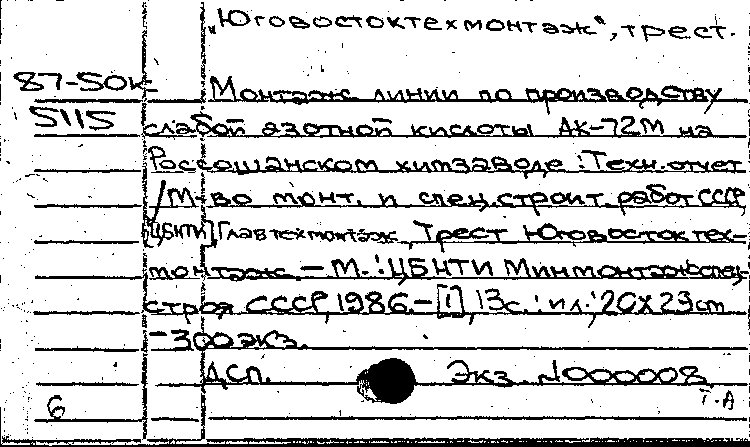 „Юговостоктехмонтаж", трест.
87-50к
Монтаж линии по производству
5115 слабой азотной кислоты АК-72М на
Россошанском химзаводе : Техн. отчет
/М-во монт. и спец. строит. работ СССР,
[ЦБНТИ], Главтехмонтаж, Трест Юговостоктех-
монтаж. – М. : ЦБНТИ Минмонтажспец-
строя СССР, 1986. – [1], 13с. : ил. ; 20х29cm
– 300 экз.
ДСП. Экз. N000008
6 Т.А